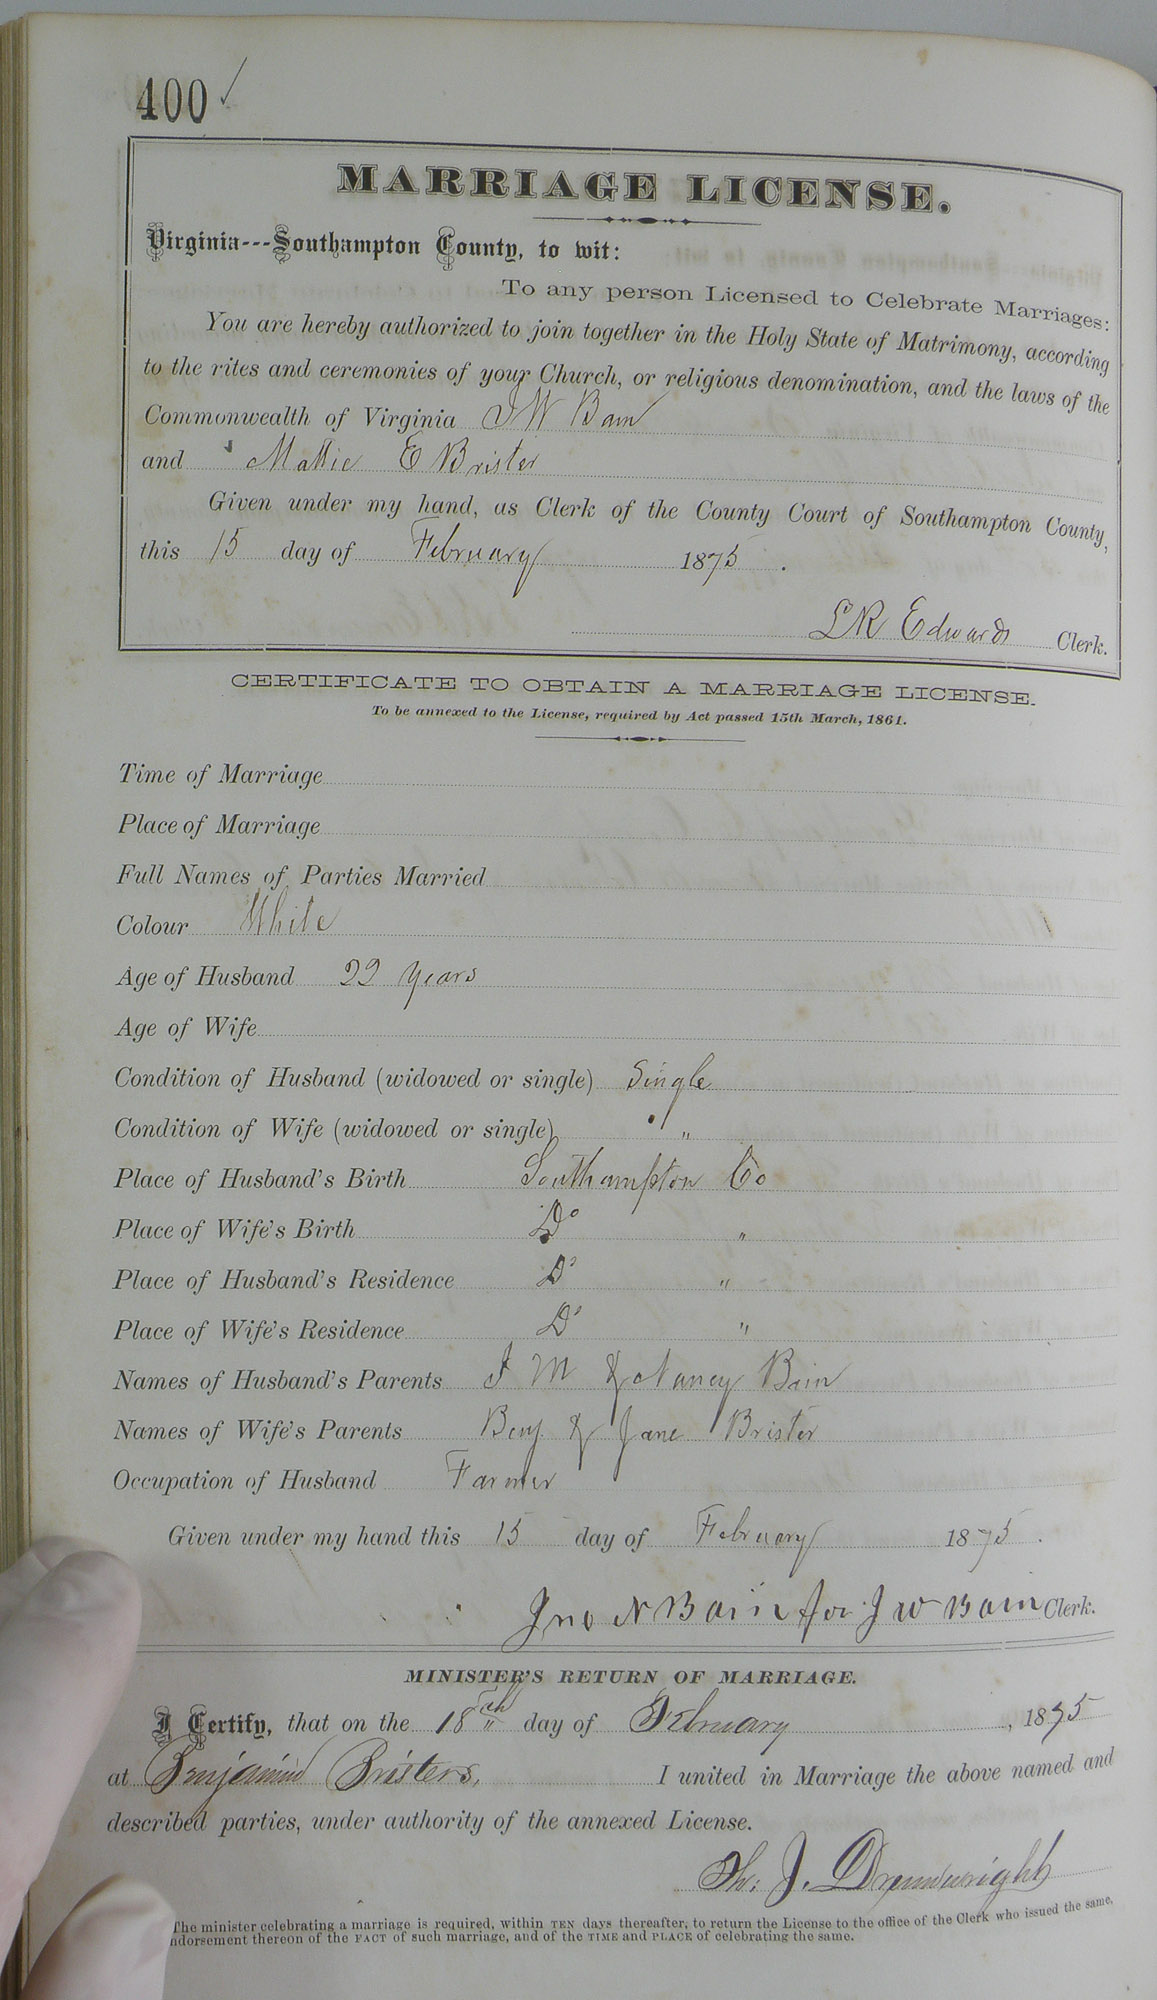 400 ✓
MARRIAGE LICENSE.
Virginia---Southampton County, to wit:
To any person Licensed to Celebrate Marriages:
You are hereby authorized to join together in the Holy State of Matrimony, according
to the rites and ceremonies of your Church, or religious denomination, and the laws of the
Commonwealth of Virginia J W Bain
and Mattie E Brister
Given under my hand, as Clerk of the County Court of Southampton County,
this 15 day of February 1875.
L R Edwards Clerk.
CERTIFICATE TO OBTAIN A MARRIAGE LICENSE.
To be annexed to the License, required by Act passed 15th March, 1861.
Time of Marriage
Place of Marriage
Full Names of Parties Married
Colour White
Age of Husband 22 years
Age of Wife
Condition of Husband (widowed or single) Single
Condition of Wife (widowed or single) "
Place of Husband's Birth Southampton Co
Place of Wife's Birth Do "
Place of Husband's Residence Do "
Place of Wife's Residence Do "
Names of Husband's Parents J M & Nancy Bain
Names of Wife's Parents Benj. & Jane Brister
Occupation of Husband Farmer
Given under my hand this 15 day of February 1875.
Jno N Bain for J W Bain Clerk.
MINISTER'S RETURN OF MARRIAGE.
I Certify, that on the 18th day of February, 1875
at Benjamin Bristers, I united in Marriage the above named and
described parties, under authority of the annexed License.
Th: J. Drewwright
The minister celebrating a marriage is required, within TEN days thereafter, to return the License to the office of the Clerk who issued the same,
ndorsement thereon of the FACT of such marriage, and of the TIME and PLACE of celebrating the same.